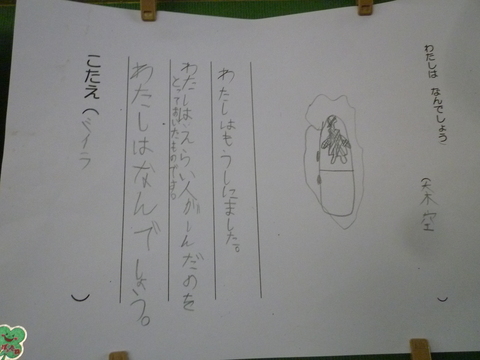 わたしは なんでしょう
わたしはもうしにました。
わたしは、えらい人がしんだのを
とっておいたものです。
わたしはなんでしょう。
こたえ(ミイラ)